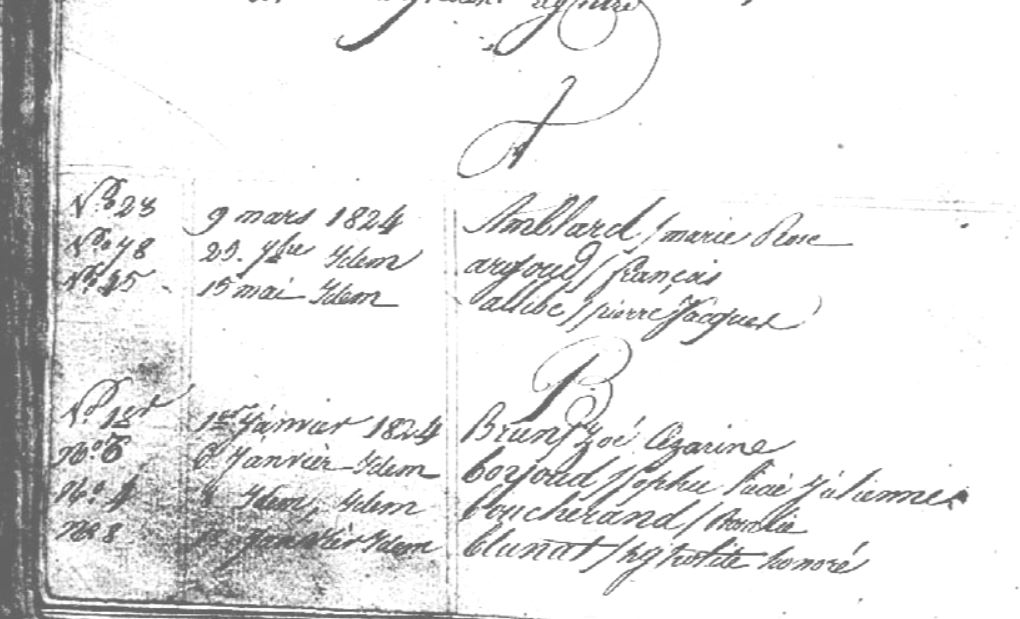 registre
A
N.º 28 9 mars 1824 Amblard / marie Rose
N.º 78 29. 7bre Idem argoud / françois
N.º 45 15 mai Idem allibe / pierre Jacques
B
N.º 1er 1er Janvier 1824 Brun / Zoé Cézarine
N.º 6 Janvier Idem borjoud / Sophie Julienne
N.º 4 Idem, Idem boucherand /
N.º 8 Janvier Idem blunat / hypolite honoré